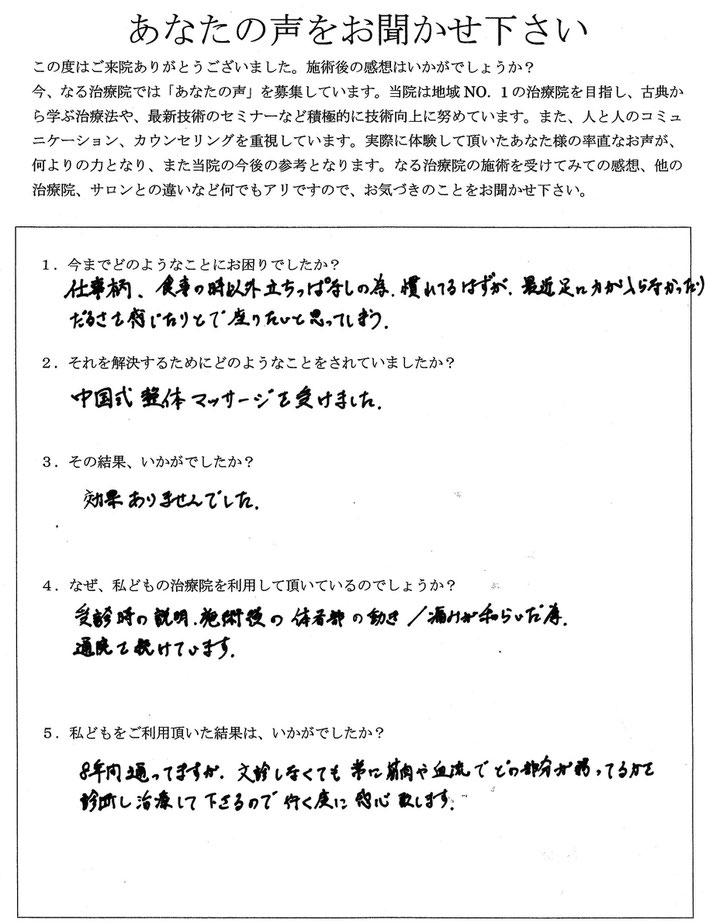 あなたの声をお聞かせ下さい
この度はご来院ありがとうございました。施術後の感想はいかがでしょうか？
今、なる治療院では「あなたの声」を募集しています。当院は地域NO.１の治療院を目指し、古典か
ら学ぶ治療法や、最新技術のセミナーなど積極的に技術向上に努めています。また、人と人のコミュ
ニケーション、カウンセリングを重視しています。実際に体験して頂いたあなた様の率直なお声が、
何よりの力となり、また当院の今後の参考となります。なる治療院の施術を受けてみての感想、他の
治療院、サロンとの違いなど何でもアリですので、お気づきのことをお聞かせ下さい。
１．今までどのようなことにお困りでしたか？
仕事柄、食事の時以外立ちっぱなしの為、慣れてるはずが、最近足に力が入らなかったり
だるさを感じたりとで座りたいと思ってしまう。
２．それを解決するためにどのようなことをされていましたか？
中国式整体マッサージを受けました。
３．その結果、いかがでしたか？
効果ありませんでした。
４．なぜ、私どもの治療院を利用して頂いているのでしょうか？
受診時の説明、施術後の体各部の動き／痛みが和らいだ為、
通院を続けています。
５．私どもをご利用頂いた結果は、いかがでしたか？
8年間通ってますが、文診しなくても常に筋肉や血流でどの部分が弱ってるかを
診断し治療して下さるので行く度に感心致します。